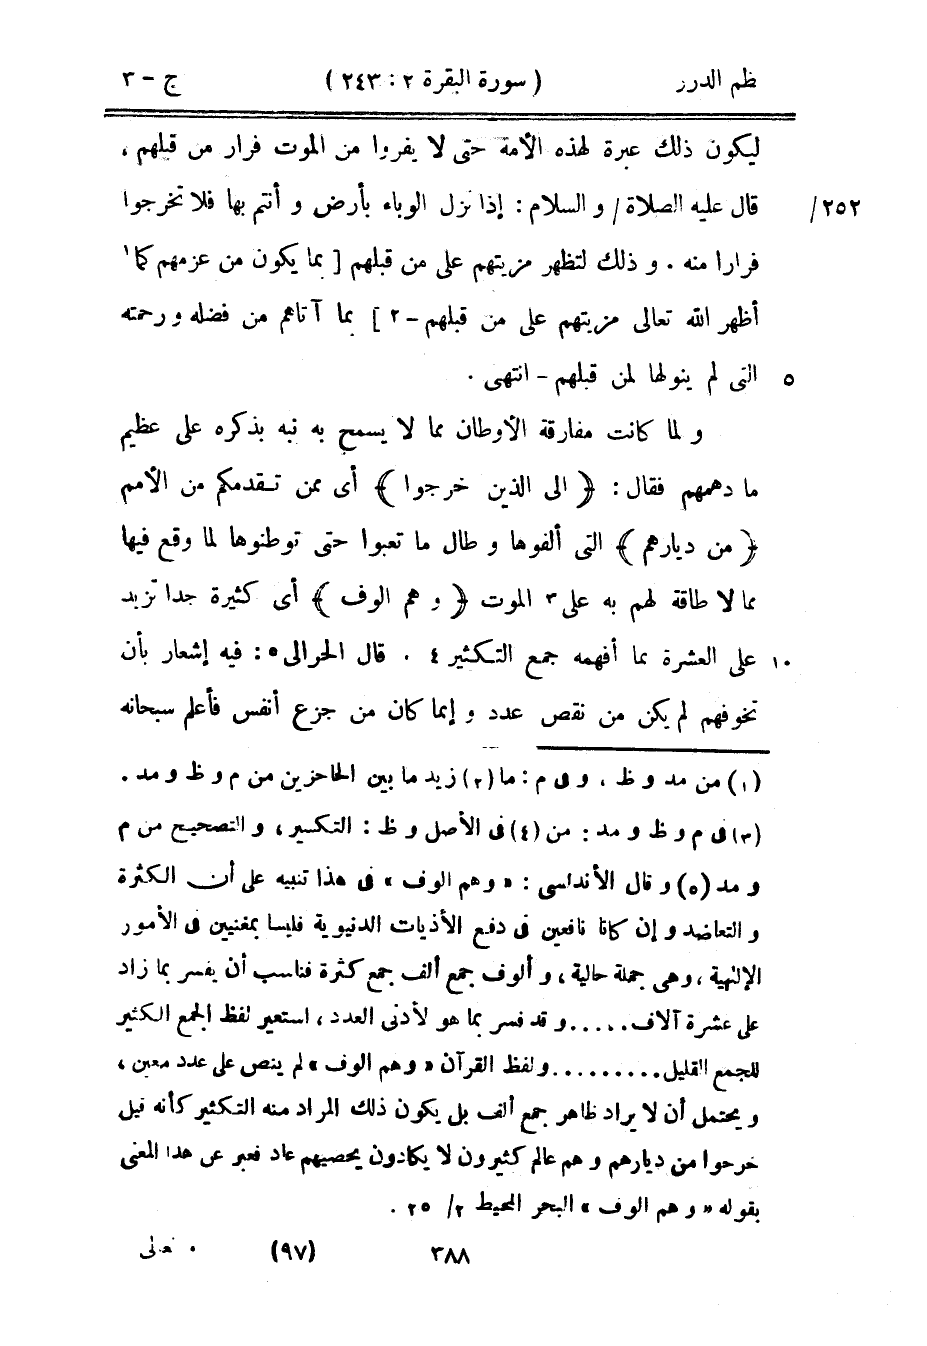 نظم الدرر ( سورة البقرة ٢ : ٢٤٣ ) ج – ٣
ليكون ذلك عبرة لهذه الأمة حتى لا يفروا من الموت فرار من قبلهم ،
قال عليه الصلاة / و السلام : إذا نزل الوباء بأرض و أنتم بها فلا تخرجوا /٢٥٢
فرارا منه . و ذلك لتظهر مزيتهم على من قبلهم [ بما يكون من عزمهم كما١
أظهر الله تعالى مزيتهم على من قبلهم –٢ ] بما آتاهم من فضله و رحمته
٥ التى لم ينولها لمن قبلهم – انتهى .
و لما كانت مفارقة الأوطان مما لا يسمح به نبه بذكره على عظيم
ما دهمهم فقال : ﴿ الى الذين خرجوا ﴾ أى ممن تقدمكم من الأمم
﴿ من ديارهم ﴾ التى ألفوها و طال ما تعبوا حتى توطنوها لما وقع فيها
مما لا طاقة لهم به على٣ الموت ﴿ و هم الوف ﴾ أى كثيرة جدا تزيد
١٠ على العشرة بما أفهمه جمع التكثير٤ . قال الحرالى٥ : فيه إشعار بأن
تخوفهم لم يكن من نقص عدد و إنما كان من جزع أنفس فأعلم سبحانه
(١) من مد و ظ ، و فى م : ما (٢) زيد ما بين الحاجزين من م و ظ و مد .
(٣) فى م و ظ و مد : من (٤) فى الأصل و ظ : التكسير ، و التصحيح من م
و مد (٥) و قال الأندلسى : « وهم الوف » فى هذا تنبيه على أن الكثرة
و التعاضد و إن كانا نافعين فى دفع الأذيات الدنيوية فليسا بمغنيين فى الأمور
الإلهية ، وهى جملة حالية ، و ألوف جمع ألف جمع كثرة فناسب أن يفسر بما زاد
على عشرة آلاف ..... و قد فسر بما هو لأدنى العدد ، استعير لفظ الجمع الكثير
للجمع القليل ......... ولفظ القرآن « وهم الوف » لم ينص على عدد معين ،
و يحتمل أن لا يراد ظاهر جمع ألف بل يكون ذلك المراد منه التكثير كأنه قيل
خرجوا من ديارهم و هم عالم كثيرون لا يكادون يحصيهم عاد فعبر عن هذا المعنى
بقوله « و هم الوف » البحر المحيط ٢/ ٢٥٠ .
٣٨٨ (٩٧) تعالى